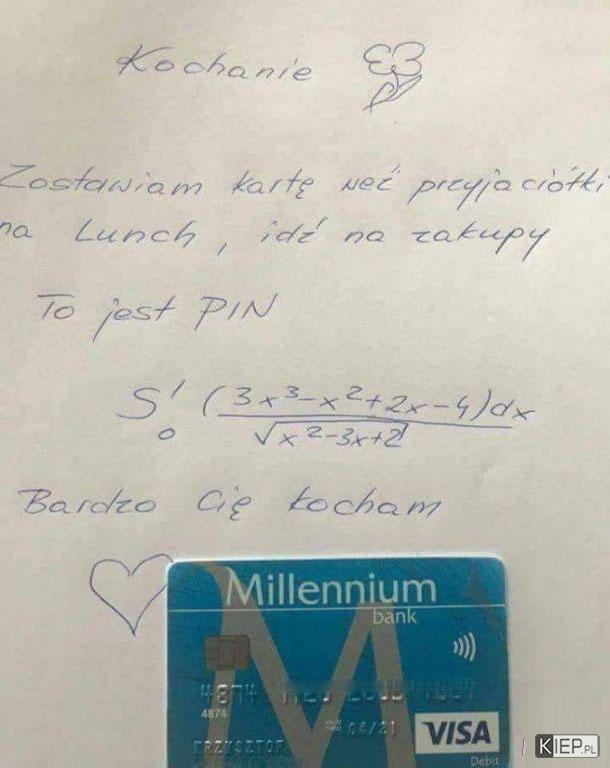 Kochanie
Zostawiam kartę weź przyjaciółki
na Lunch, idź na zakupy
To jest PIN
S¹₀ (3x³-x²+2x-4)dx
√x²-3x+2
Bardzo Cię kocham
Millennium
bank
4874
4874
04/21
VISA
KRZYSZTOF
Debit
KIEP.PL